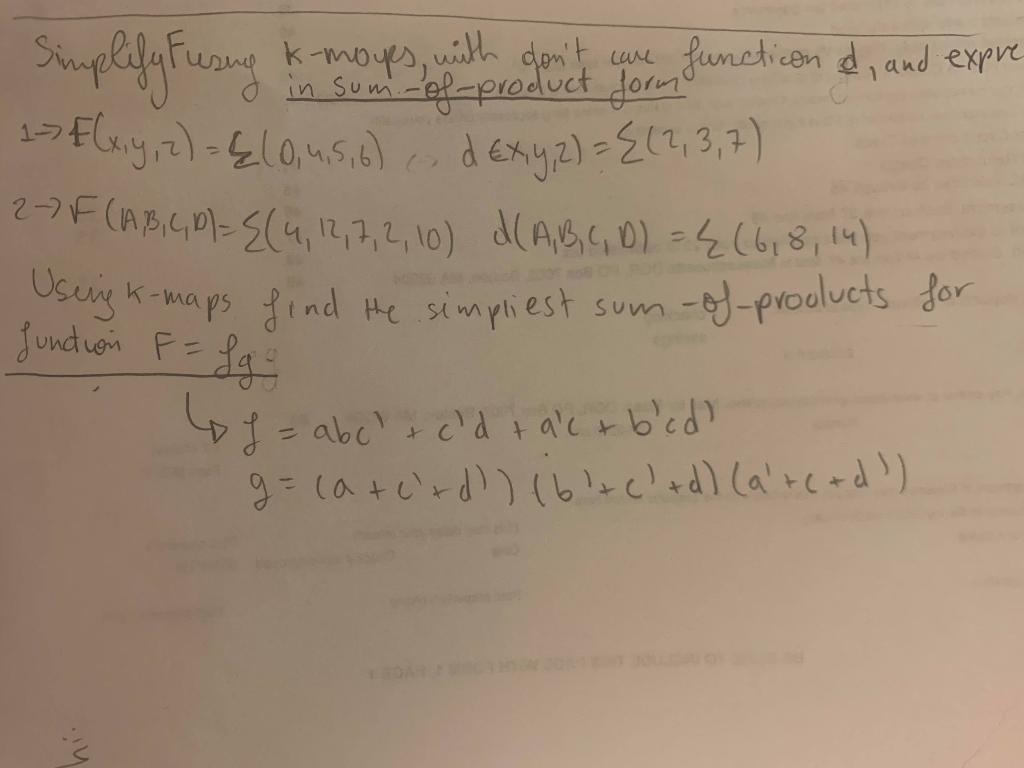 Simplify F using k-maps, with don't care function d, and expre
in sum-of-product form
1→ F(x,y,z) = Σ(0,4,5,6) d(x,y,z) = Σ(2,3,7)
2→ F(A,B,C,D) = Σ(4,12,7,2,10) d(A,B,C,D) = Σ(6,8,14)
Using k-maps find the simpliest sum-of-products for
function F = fg
↳ f = abc' + c'd + a'c + b'cd'
g = (a + c' + d') (b' + c' + d) (a' + c + d')